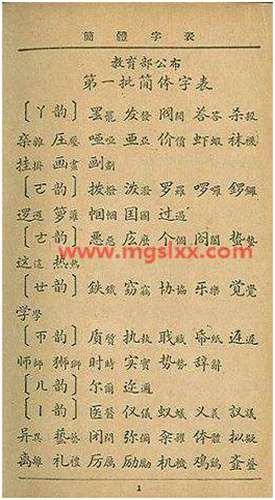 簡體字表
教育部公布
第一批简体字表
〔ㄚ韵〕罢罷 发發 阀閥 荅答 杀殺
杂雜 压壓 哑啞 亚亞 价價 虾蝦 袜襪
挂掛 画畫 划劃
〔ㄛ韵〕拨撥 泼潑 罗羅 啰囉 锣鑼
逻邏 箩籮 帼幗 国國 过過
www.mgslxx.com
〔ㄜ韵〕恶惡 庅麼 个個 阁閣 蛰蟄
这這 热熱
〔ㄝ韵〕鉄鐵 窃竊 协協 乐樂 觉覺
学學
〔ㄭ韵〕质質 执執 职職 帋紙 迟遲
师師 狮獅 时時 实實 势勢 辞辭
〔ㄦ韵〕尔爾 迩邇
〔ㄧ韵〕医醫 仪儀 蚁蟻 义義 议議
异異 艺藝 闭閉 弥彌 籴糴 体體 拟擬
离離 礼禮 厉厲 励勵 机機 鸡鷄
1